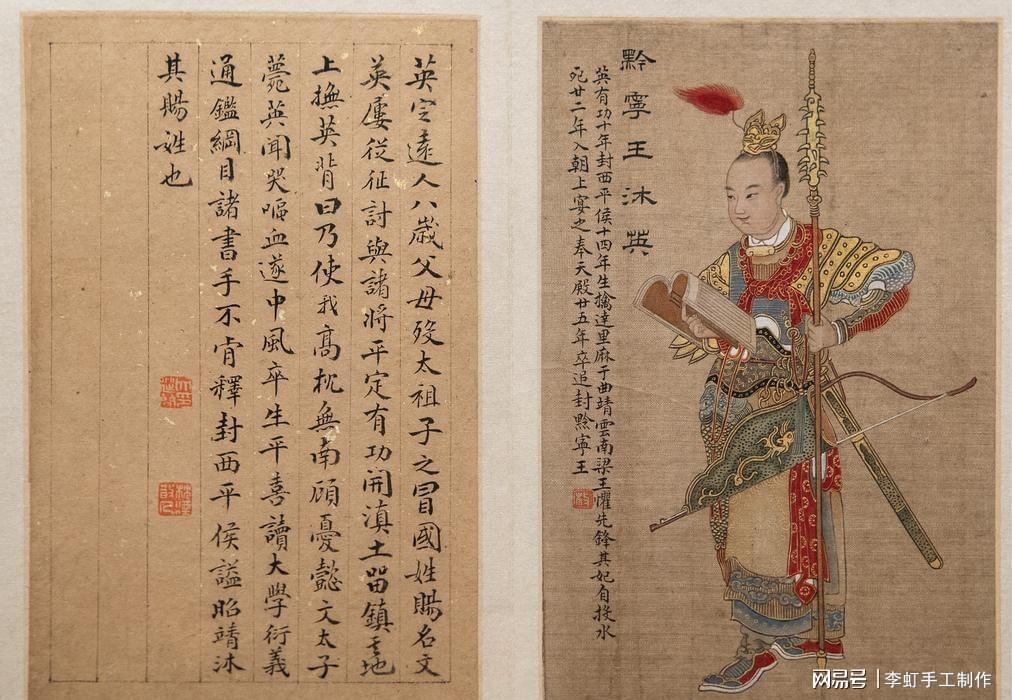 黔寧王沐英
英有功十年封西平侯十四年生擒達里麻于曲靖雲南梁王懼先鋒其妃自投水
死廿二年入朝上宴之奉天殿廿五年卒追封黔寧王
英定遠人八歲父母歿太祖子之冒國姓賜名文
英屢從征討與諸將平定有功開滇土留鎮其地
上撫英背曰乃使我髙枕無南顧憂懿文太子
薨英聞哭嘔血遂中風卒生平喜讀大學衍義
通鑑綱目諸書手不肯釋封西平侯謚昭靖沐
其賜姓也
网易号 | 李虹手工制作